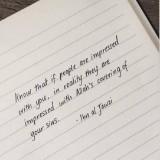 Know that if people are impressed
with you, in reality they are
impressed with Allah's covering of
your sins.
- Ibn al Jawzi